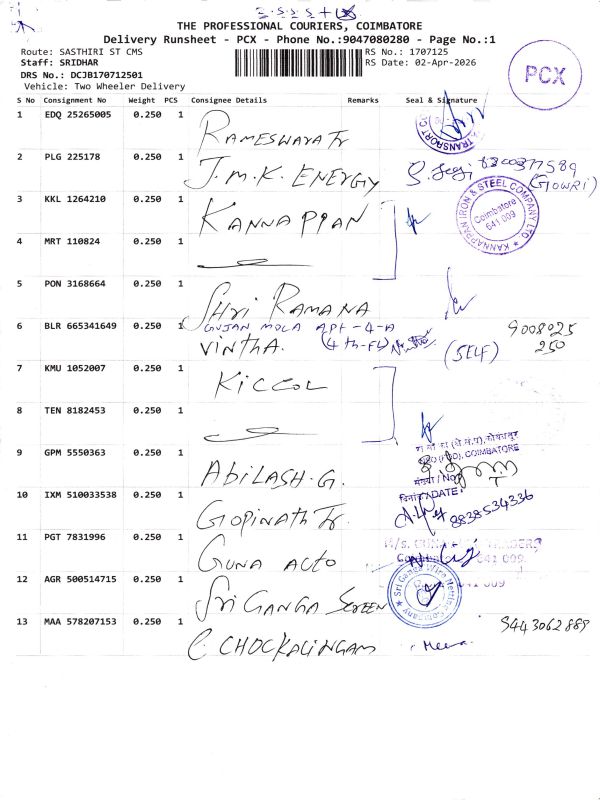 THE PROFESSIONAL COURIERS, COIMBATORE
Delivery Runsheet - PCX - Phone No.:9047080280 - Page No.:1
Route: SASTHIRI ST CMS RS No.: 1707125
Staff: SRIDHAR RS Date: 02-Apr-2026
DRS No.: DCJB170712501
Vehicle: Two Wheeler Delivery
PCX
S No Consignment No Weight PCS Consignee Details Remarks Seal & Signature
1 EDQ 25265005 0.250 1 RAMESWARA Tr
TRANSPORT CO
2 PLG 225178 0.250 1 J.M.K. ENERGY 8300377589
(GOWRI)
3 KKL 1264210 0.250 1 KANNAPPAN
KANNAPPAN IRON & STEEL COMPANY LTD
Coimbatore
641 009
4 MRT 110824 0.250 1
5 PON 3168664 0.250 1 SHri RAMANA
6 BLR 665341649 0.250 1 GUJAN MOLA APt-4-A
VINTHA. (4th-FL) (SELF) 9008025
250
7 KMU 1052007 0.250 1 KICCOL
8 TEN 8182453 0.250 1
9 GPM 5550363 0.250 1 ABILASH.G.
COIMBATORE
/ No
/ DATE
10 IXM 510033538 0.250 1 GOPINATH Tr. 8838534336
11 PGT 7831996 0.250 1 GUNA AUTO
M/s.
641 009
12 AGR 500514715 0.250 1 Sri GANGA SCREEN
Sri Ganga Wire Netting Company
13 MAA 578207153 0.250 1 C. CHOCKALINGAM Meena 9443062889